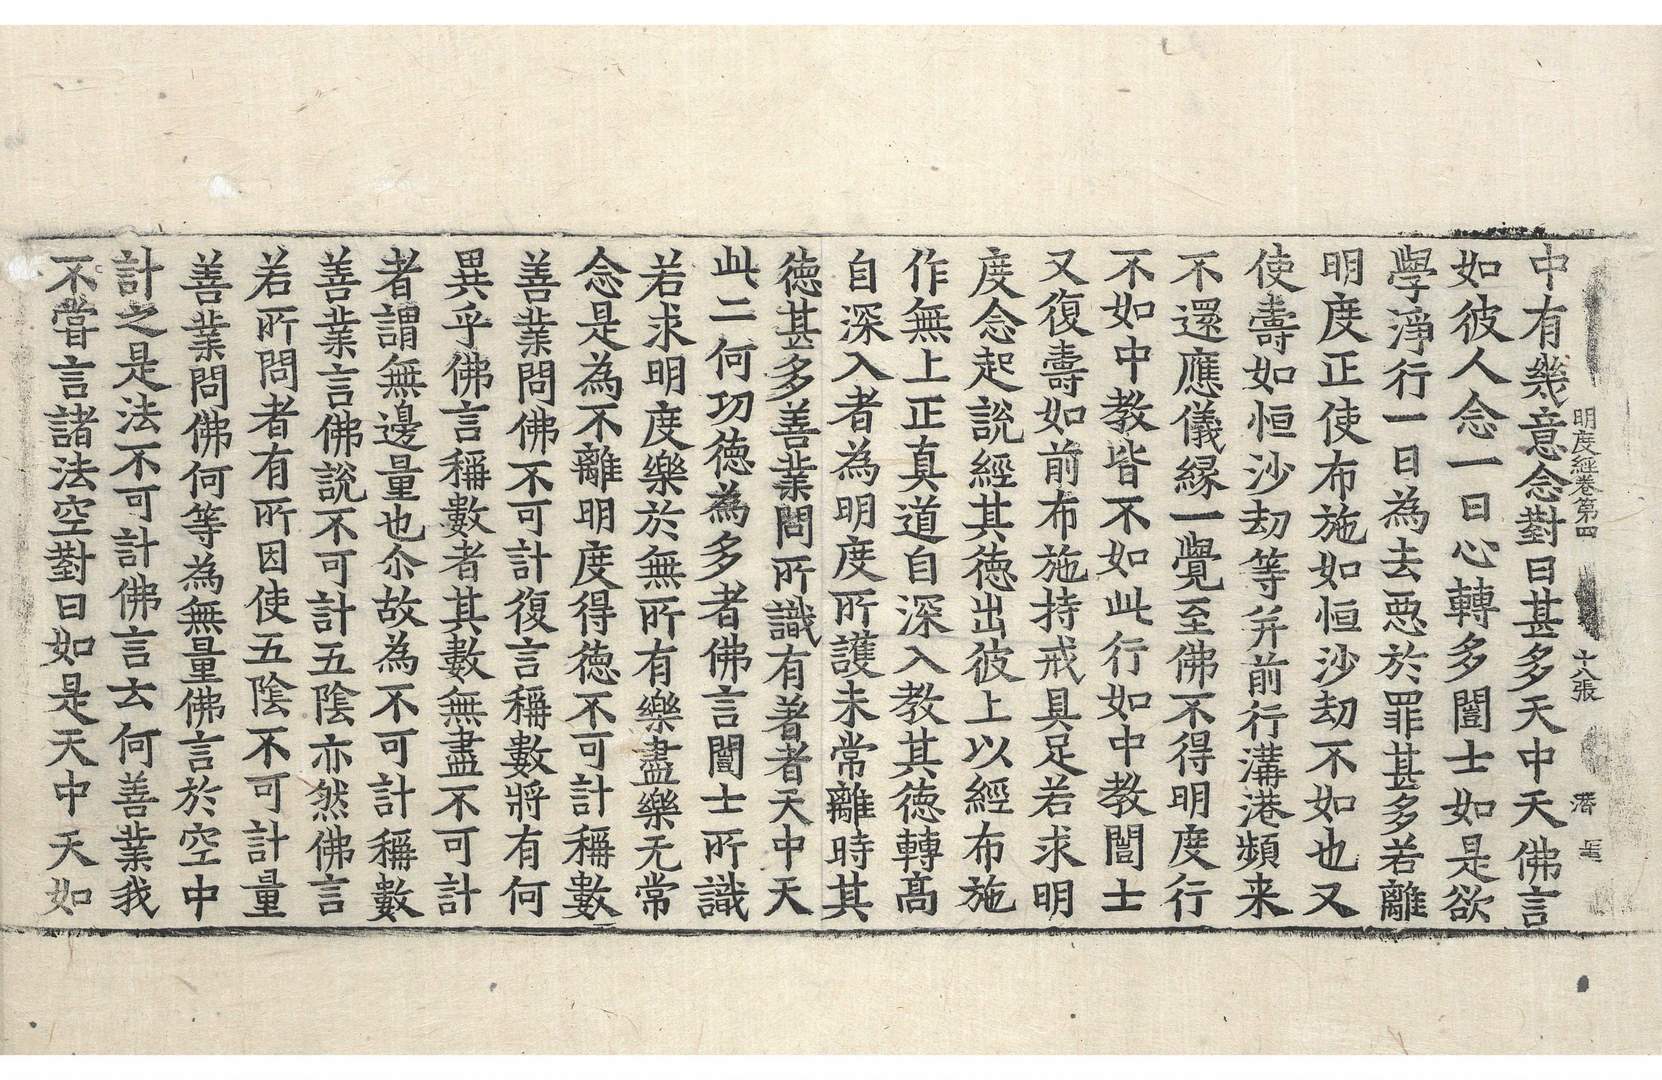 明度經卷第四 十八張 潛
中有幾意念對曰甚多天中天佛言
如彼人念一日心轉多闓士如是欲
學淨行一日為去惡於罪甚多若離
明度正使布施如恒沙劫不如也又
使壽如恒沙劫等并前行溝港頻来
不還應儀縁一覺至佛不得明度行
不如中教皆不如此行如中教闓士
又復壽如前布施持戒具足若求明
度念起說經其德出彼上以經布施
作無上正真道自深入教其德轉高
自深入者為明度所護未常離時其
德甚多善業問所識有著者天中天
此二何功德為多者佛言闓士所識
若求明度樂於無所有樂盡樂无常
念是為不離明度得德不可計稱數
善業問佛不可計復言稱數將有何
異乎佛言稱數者其數無盡不可計
者謂無邊量也尒故為不可計稱數
善業言佛說不可計五陰亦然佛言
若所問者有所因使五陰不可計量
善業問佛何等為無量佛言於空中
計之是法不可計佛言去何善業我
不嘗言諸法空對曰如是天中天如